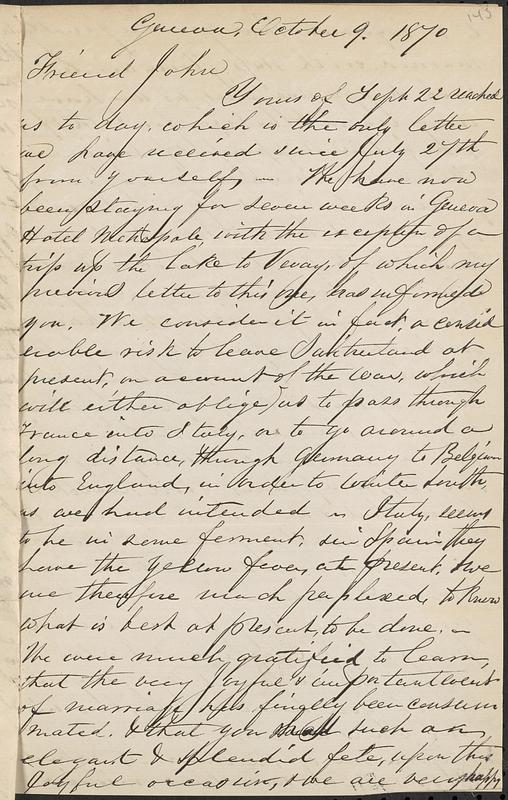 143
Geneva, October 9. 1870
Friend John
Yours of Sept 22 reached
us to day, which is the only letter
we have received since July 27th
from yourself, — We have now
been staying for seven weeks in Geneva
Hotel Metropole, with the exception of a
trip up the Lake to Vevay, of which my
previous letter to this one, has informed
you. We consider it in fact, a consid
erable risk to leave Switzerland at
present, on account of the war, which
will either oblige us to pass through
France into Italy, or to go around a
long distance, through Germany to Belgium
into England, in order to winter south,
as we had intended Italy, seems
to be in some ferment, in Spain they
have the Yellow fever, at present, & we
are therefore much perplexed, to know
what is best at present, to be done. —
We were much gratified to learn,
that the very joyful & important event
of marriage has finally been consum
mated. & that you had such an
elegant & splendid fete, upon this
joyful occasion, & we are very happy